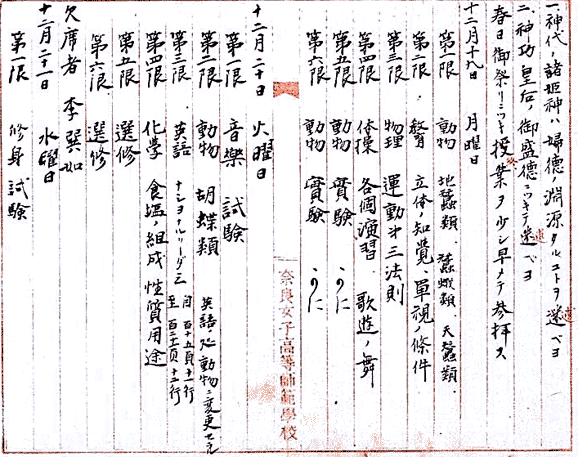 一、神代ノ諸姫神ハ婦徳ノ淵源タルコトヲ述ベヨ
二、神功皇后ノ御盛徳ニツキテ述ベヨ
春日御祭リニツキ授業ヲ少シ早メテ参拝ス
十二月十九日 月曜日
第一限 動物 地蚕類、蚕蛾類、天蚕類
第二限 教育 立体ノ知覚、単視ノ條件
第三限 物理 運動ノ三法則
第四限 体操 各個演習、歌遊ノ舞
第五限 動物 實験 かに
第六限 動物 實験 かに
奈良女子高等師範學校
十二月二十日 火曜日
第一限 音樂 試験
第二限 動物 胡蝶類 英語ヲ動物ニ変更セラル
第三限 英語 ナショナルリーダー三 自百十五頁十一行 至百二十二頁十二行
第四限 化學 食塩ノ組成性質用途
第五限 選修
第六限 選修
欠席者 李巽如
十二月二十一日 水曜日
第一限 修身 試験